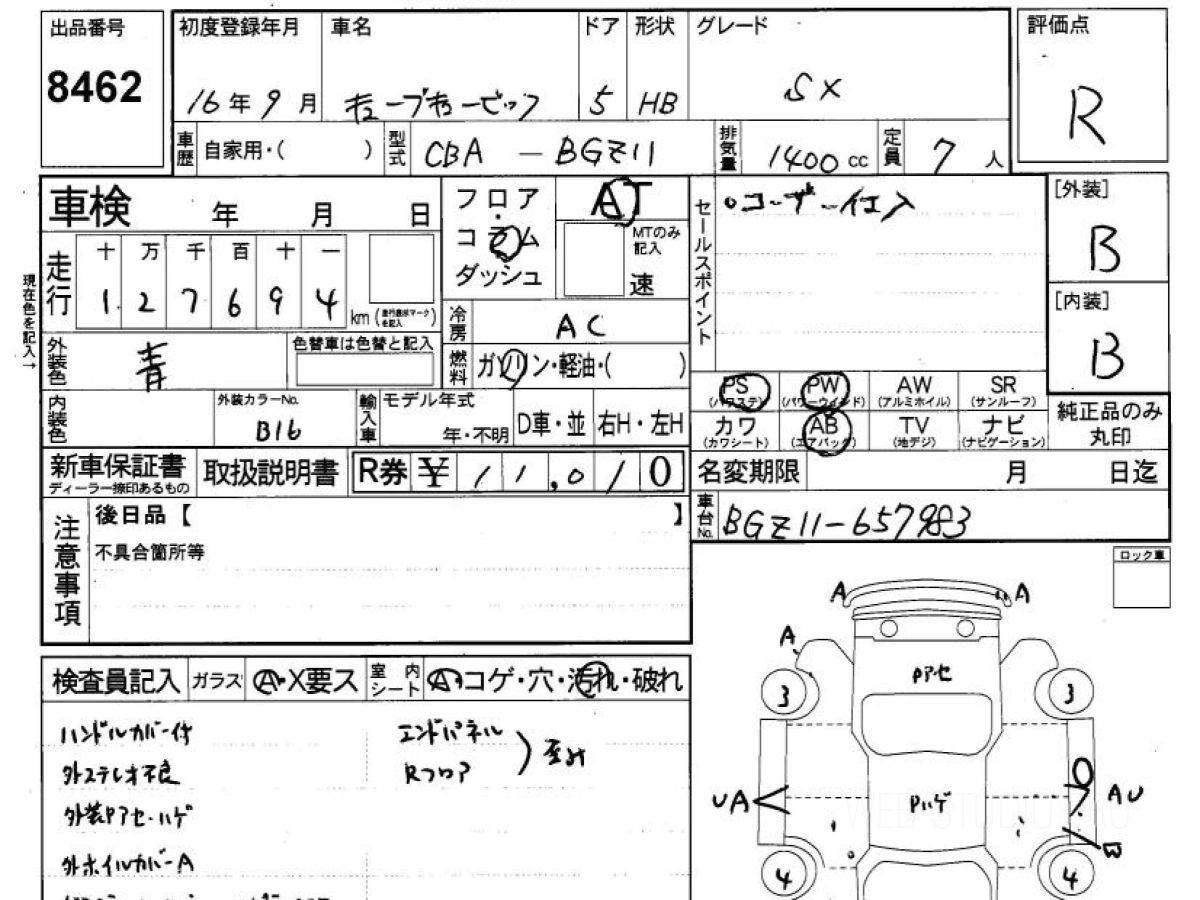 出品番号
8462
初度登録年月
16年9月
車名
キューブキュービック
ドア
5
形状
HB
グレード
SX
評価点
R
車歴 自家用・( )
型式 CBA - BGZ11
排気量 1400 cc
定員 7 人
車検 年 月 日
フロア・コラム ダッシュ
AT
MTのみ記入
速
セールスポイント
・ユーザー仕入
[外装]
B
[内装]
B
現在色を記入→
走行
十 万 千 百 十 一
1 2 7 6 9 4 km
冷房 AC
燃料 ガソリン・軽油・( )
外装色 青
色替車は色替と記入
内装色
外装カラーNo.
B16
輸入車
モデル年式
年・不明
D車・並
右H・左H
PS (パワステ)
PW (パワーウインド)
AW (アルミホイル)
SR (サンルーフ)
カワ (カワシート)
AB (エアバッグ)
TV (地デジ)
ナビ (ナビゲーション)
純正品のみ丸印
新車保証書
ディーラー捺印あるもの
取扱説明書
R券 ¥ 11,010
名変期限 月 日迄
車台No. BGZ11-657983
注意事項
後日品【 】
不具合箇所等
ロック車
検査員記入
ガラス A・X要ス
室内シート A・コゲ・穴・汚れ・破れ
ハンドルカバー付
外ステレオ不良
外装Pアセ・ハゲ
外ホイルカバーA
エンドパネル
Rフロア
歪み
A
A
A
Pアセ
3
3
UA
Pハゲ
AU
B
4
4